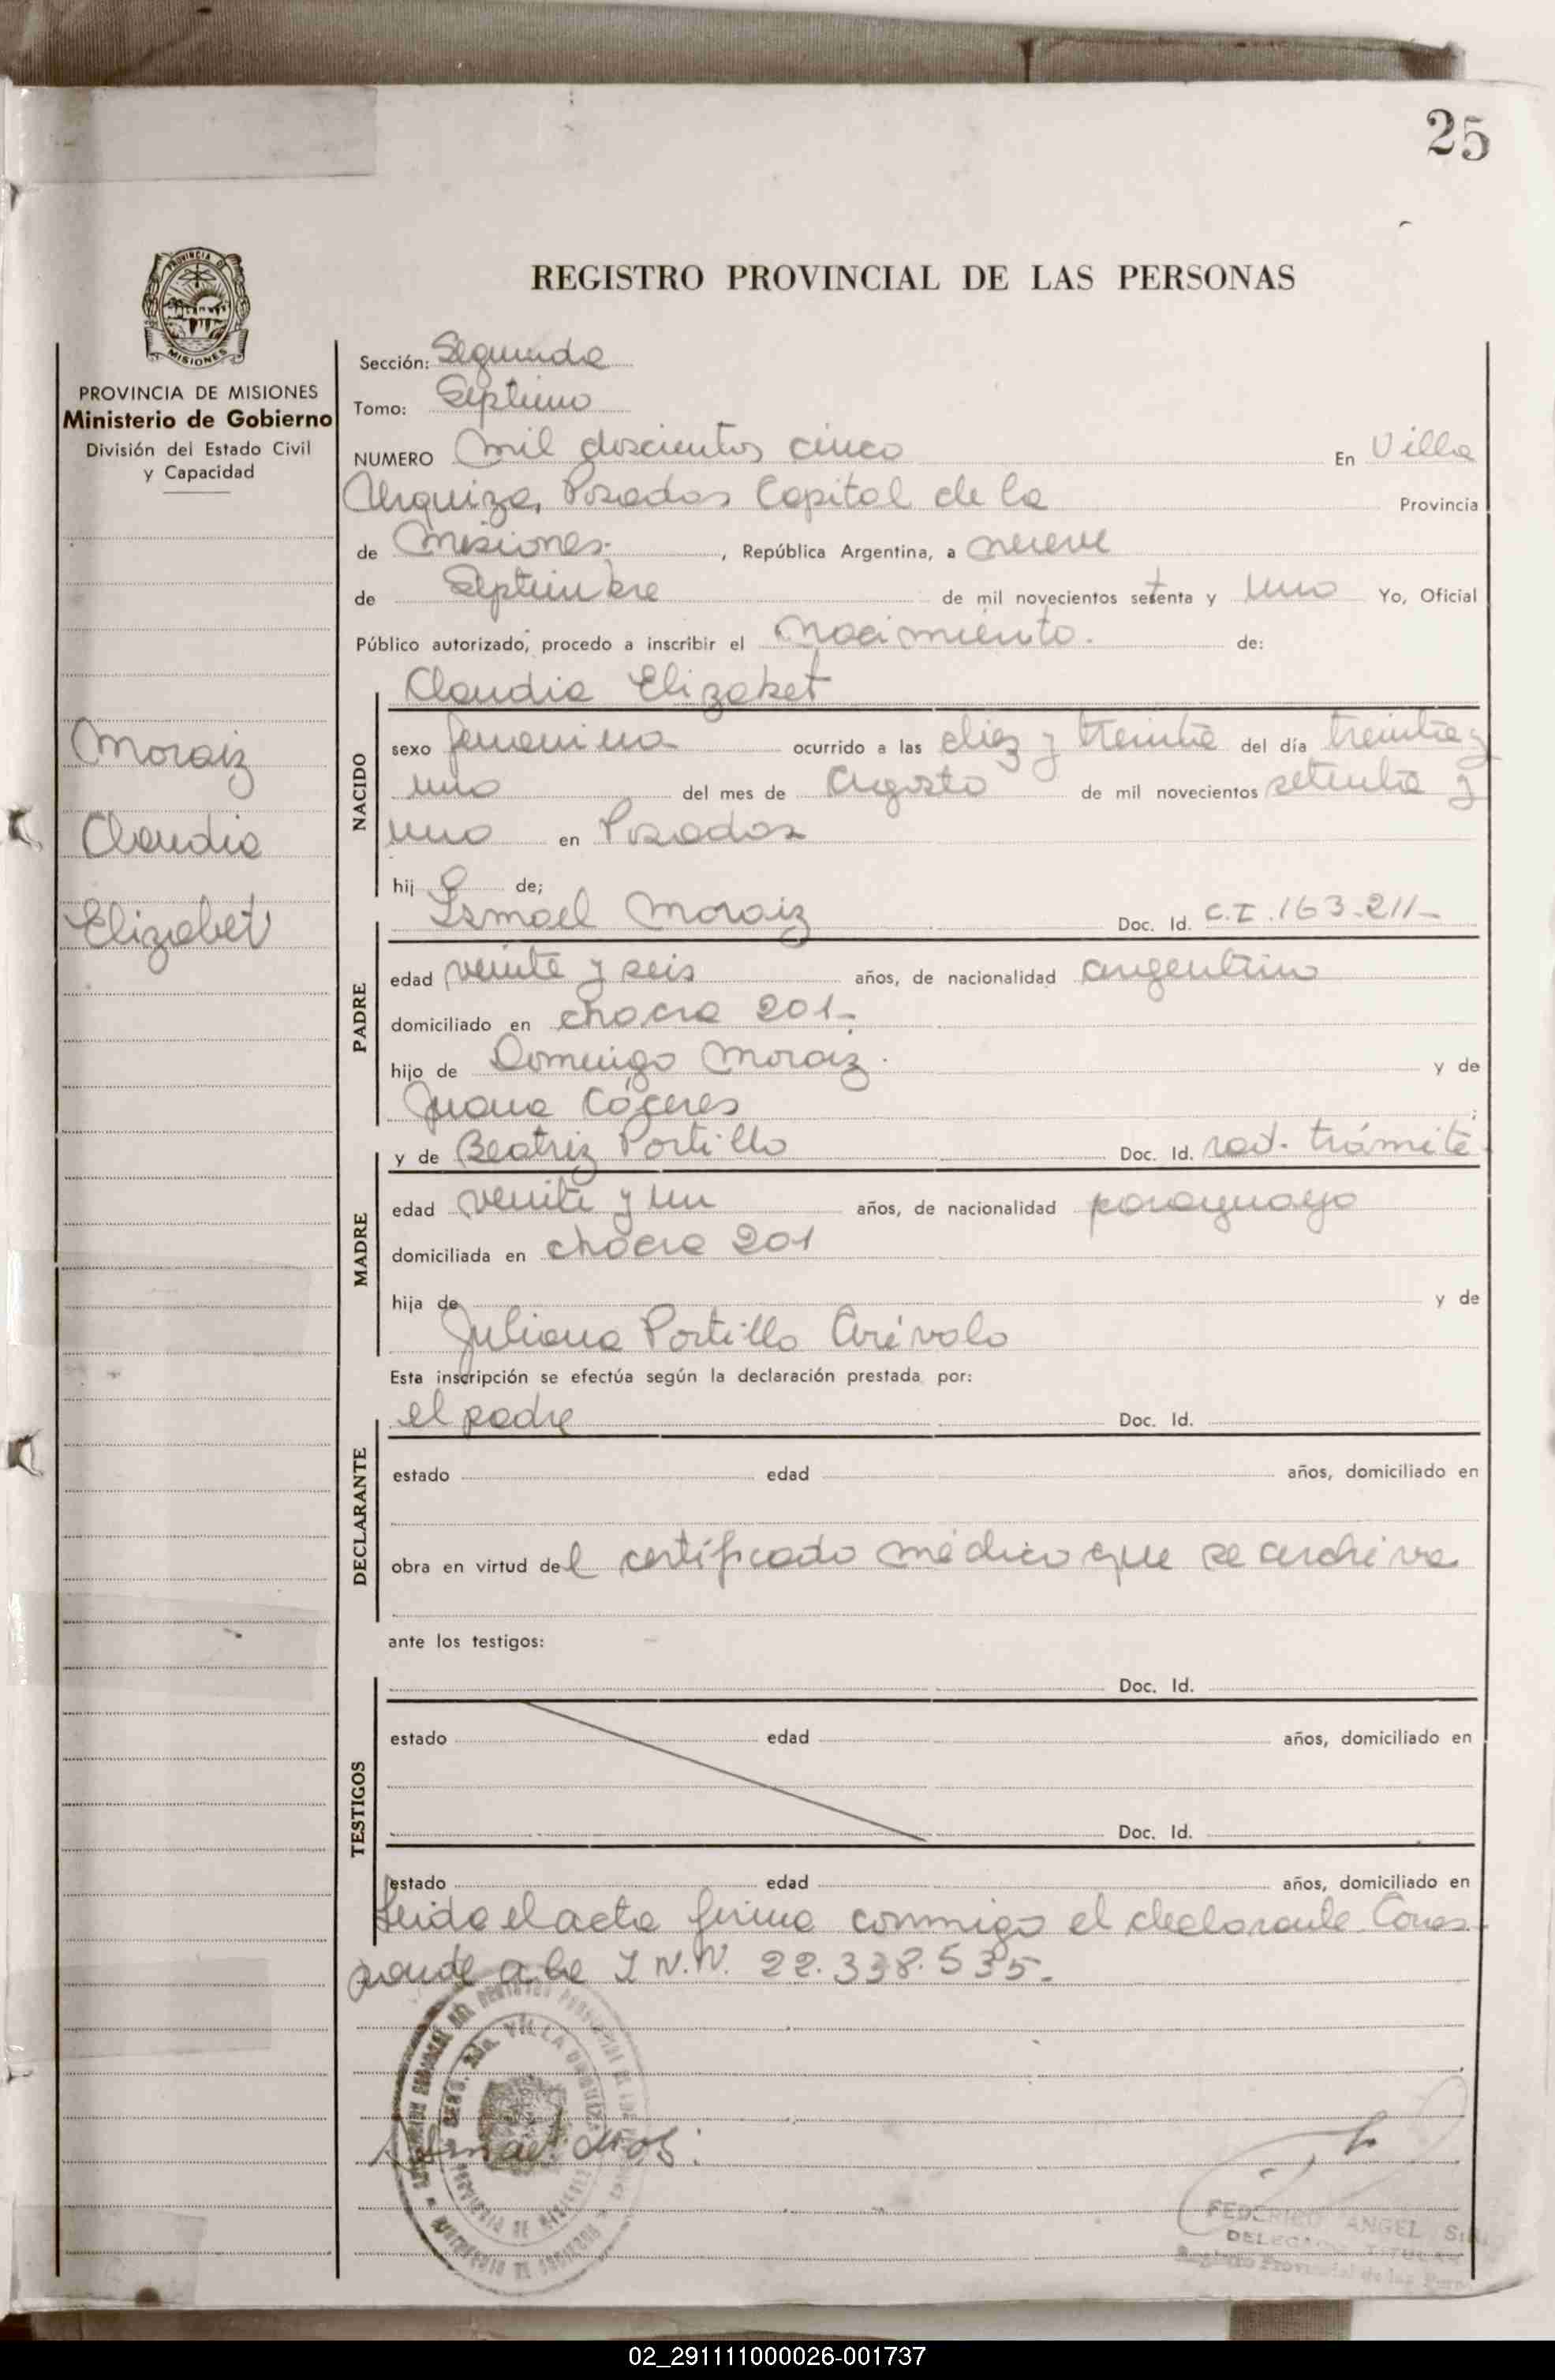 25
REGISTRO PROVINCIAL DE LAS PERSONAS
PROVINCIA DE
MISIONES
PROVINCIA DE MISIONES
Ministerio de Gobierno
División del Estado Civil
y Capacidad
Moraiz
Claudia
Elizabet
Sección: Segunda
Tomo: Septimo
NUMERO Mil doscientos cinco En Villa
Urquiza, Posadas Capital de la Provincia
de Misiones. , República Argentina, a nueve
de Septiembre de mil novecientos setenta y uno Yo, Oficial
Público autorizado, procedo a inscribir el Nacimiento. de:
Claudia Elizabet
NACIDO
sexo femenino ocurrido a las diez y treinta del día treinta y
uno del mes de Agosto de mil novecientos setenta y
uno en Posadas
hij a de;
PADRE
Ismael Moraiz Doc. Id. C.I. 163.211-
edad veinte y seis años, de nacionalidad argentino
domiciliado en chacra 201-
hijo de Domingo Moraiz. y de
Juana Cáceres ;
MADRE
y de Beatriz Portillo Doc. Id. rad. trámite
edad veinte y un años, de nacionalidad paraguaya
domiciliada en chacra 201
hija de y de
Juliana Portillo Arévalo
Esta inscripción se efectúa según la declaración prestada por:
DECLARANTE
el padre Doc. Id.
estado edad años, domiciliado en
obra en virtud del certificado médico que se archiva
ante los testigos:
TESTIGOS
Doc. Id.
estado edad años, domiciliado en
Doc. Id.
estado edad años, domiciliado en
Leida el acta firma conmigo el declarante Corres
ponde a la I N.N. 22.338.535.
VILLA URQUIZA
PROVINCIA DE MISIONES
FEDERICO ANGEL
DELEGADO TITULAR
Registro Provincial de las Pers
02_291111000026-001737